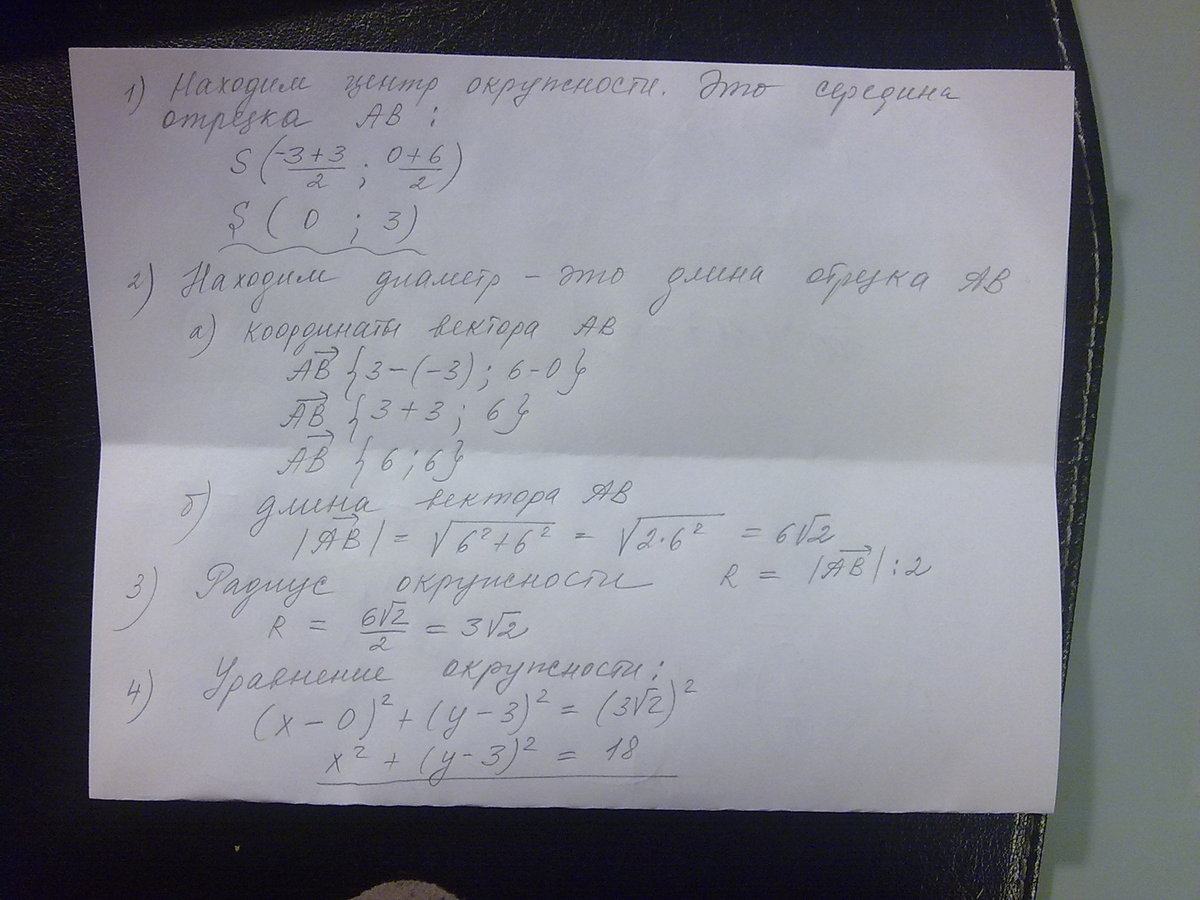 1) Находим центр окружности. Это середина
отрезка AB :
S (-3+3/2 ; 0+6/2)
S ( 0 ; 3)
2) Находим диаметр – это длина отрезка AB
а) координаты вектора AB
AB⃗ {3-(-3) ; 6-0}
AB⃗ {3+3 ; 6}
AB⃗ {6 ; 6}
б) длина вектора AB
|AB⃗| = √(6²+6²) = √(2·6²) = 6√2
3) Радиус окружности R = |AB⃗| : 2
R = 6√2/2 = 3√2
4) Уравнение окружности:
(x-0)² + (y-3)² = (3√2)²
x² + (y-3)² = 18